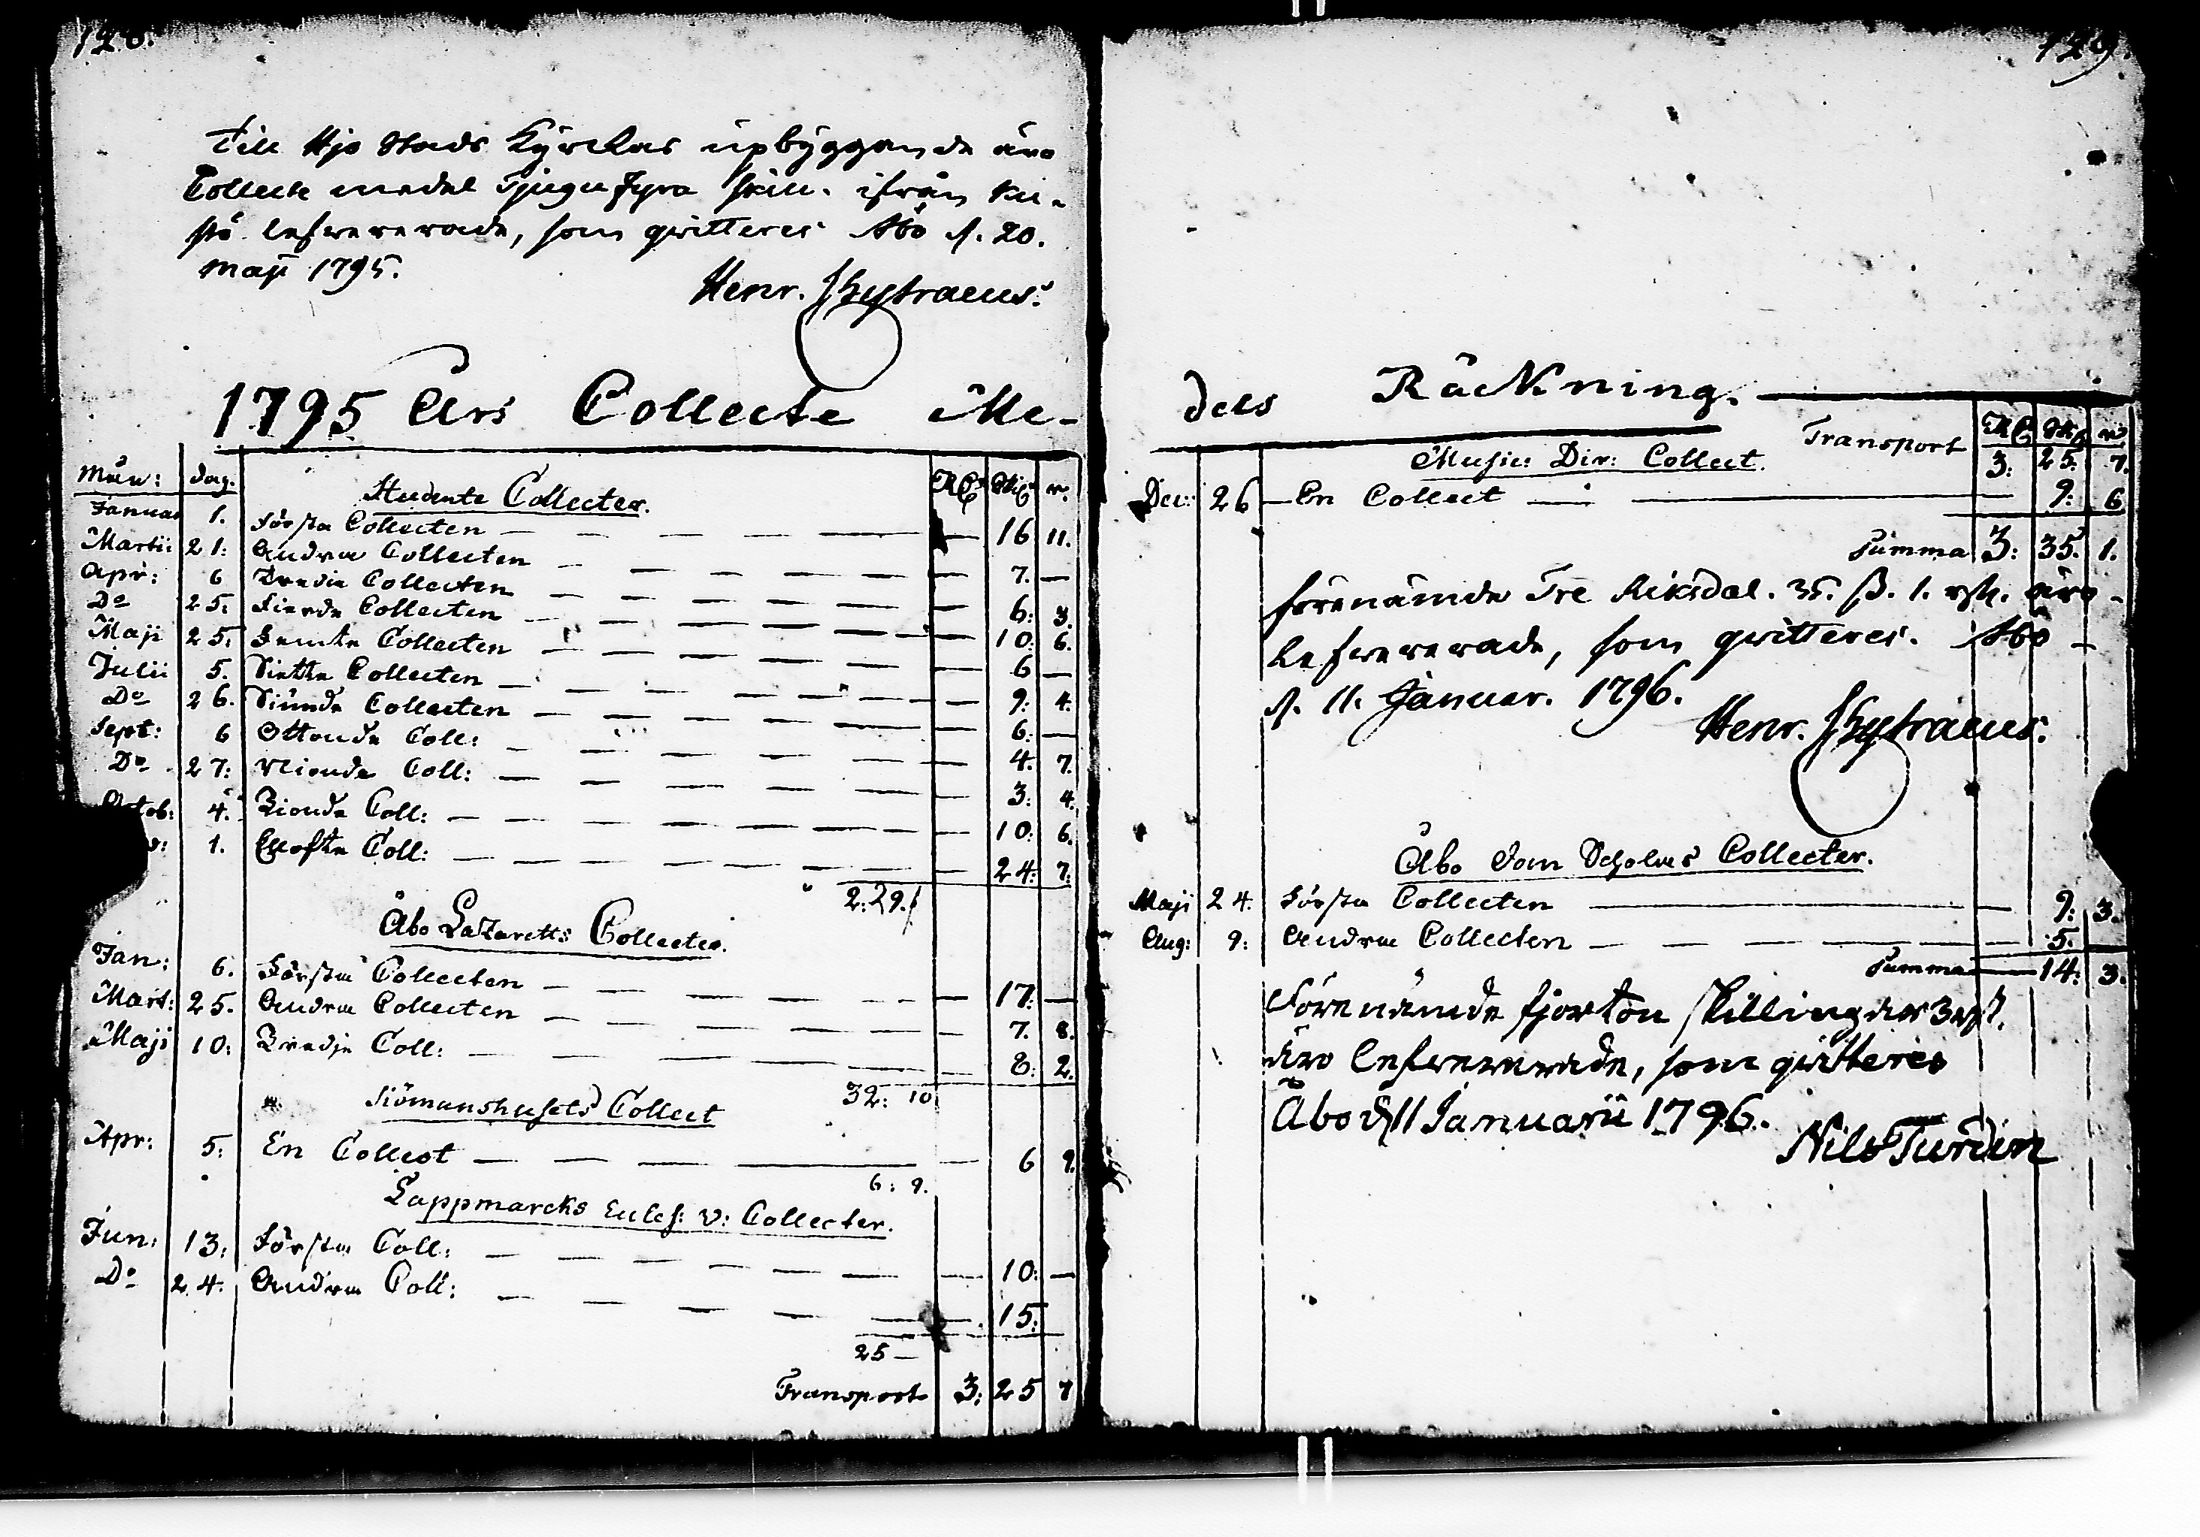 128.
Till Hjo Stads Kyrckas upbyggande äro
Collecte medel Tjugufyra skill. ifrån Ku-
stö lefwererade, som qvitteres Åbo d. 20.
Maji 1795.
Henr. Skytraeus.
1795 Års Collecte Me-
Mån: dag. Studente Collecter. RC Skl r.
Januar 1. Första Collecten — 16 11.
Martii 21: Andra Collecten — 7. —
Apr: 6 Tredie Collecten — 6: 3.
Do 25. Fierde Collecten — 10: 6.
Maji 25. Femte Collecten — 6 —
Julii 5. Siette Collecten — 9: 4.
Do 26. Siunde Collecten — 6: —
Sept: 6 Ottonde Coll: — 4. 7.
Do 27: Nionde Coll: — 3: 4.
Octob: 4. Tionde Coll: — 10: 6.
1. Ellofte Coll: — 24: 7.
2:29.
Åbo Lazaretts Collecter.
Jan: 6. Första Collecten — 17: —
Mart: 25. Andra Collecten — 7. 8.
Maji 10: Tredje Coll: — 8: 2.
32: 10
Siömanshusets Collect
Apr: 5. En Collect — 6 9.
6: 9.
Lappmarcks Eccles: v: Collecter.
Jun: 13: Första Coll: — 10: —
Do 24: Andra Coll: — 15:
25 —
Transport 3: 25 7
129.
dels Räckning.
Transport RC Sk r
Music: Dir: Collect. 3: 25: 7.
Dec: 26 — En Collect — 9: 6
Summa 3: 35. 1.
förenämde Tre Riksdal. 35. ß. 1. rst. äro
lefwererade, som qvitteres. Åbo
d. 11. Januar. 1796.
Henr. Skytraeus.
Åbo Dom Scholæs Collecter.
Maji 24. Första Collecten — 9: 3.
Aug: 9: Andra Collecten — 5.
Summa — 14: 3.
Förenämde fjorton skillingar 3 rst.
äro lefwererade, som qvitteres
Åbo d 11 Januarii 1796.
Nils Turdin